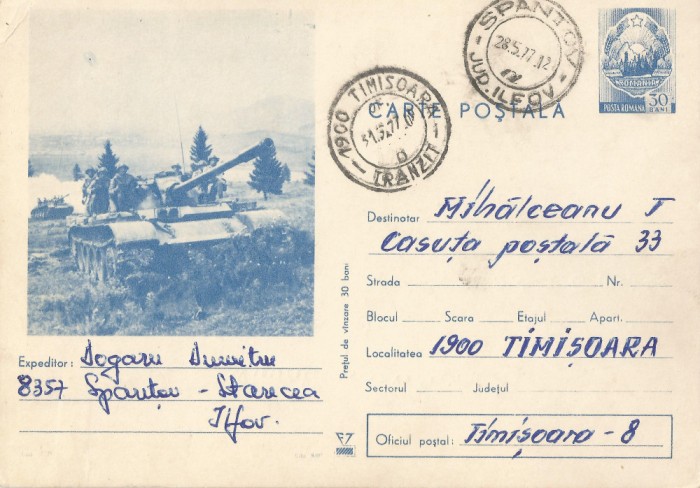 SPANȚOV
28.5.77.12
JUD. ILFOV
ROMÂNIA
POSTA ROMANA 30 BANI
1900 TIMISOARA
31.5.77
TRANZIT
CARTE POȘTALĂ
Destinatar Mihâlceanu T
Casuța poștală 33
Strada Nr.
Blocul Scara Etajul Apart.
Localitatea 1900 TIMIȘOARA
Sectorul Județul
Oficiul poștal: Timișoara - 8
Prețul de vînzare 30 bani
Expeditor: Dogaru Dumitru
8357 Spanțov - Stancea
Ilfov.